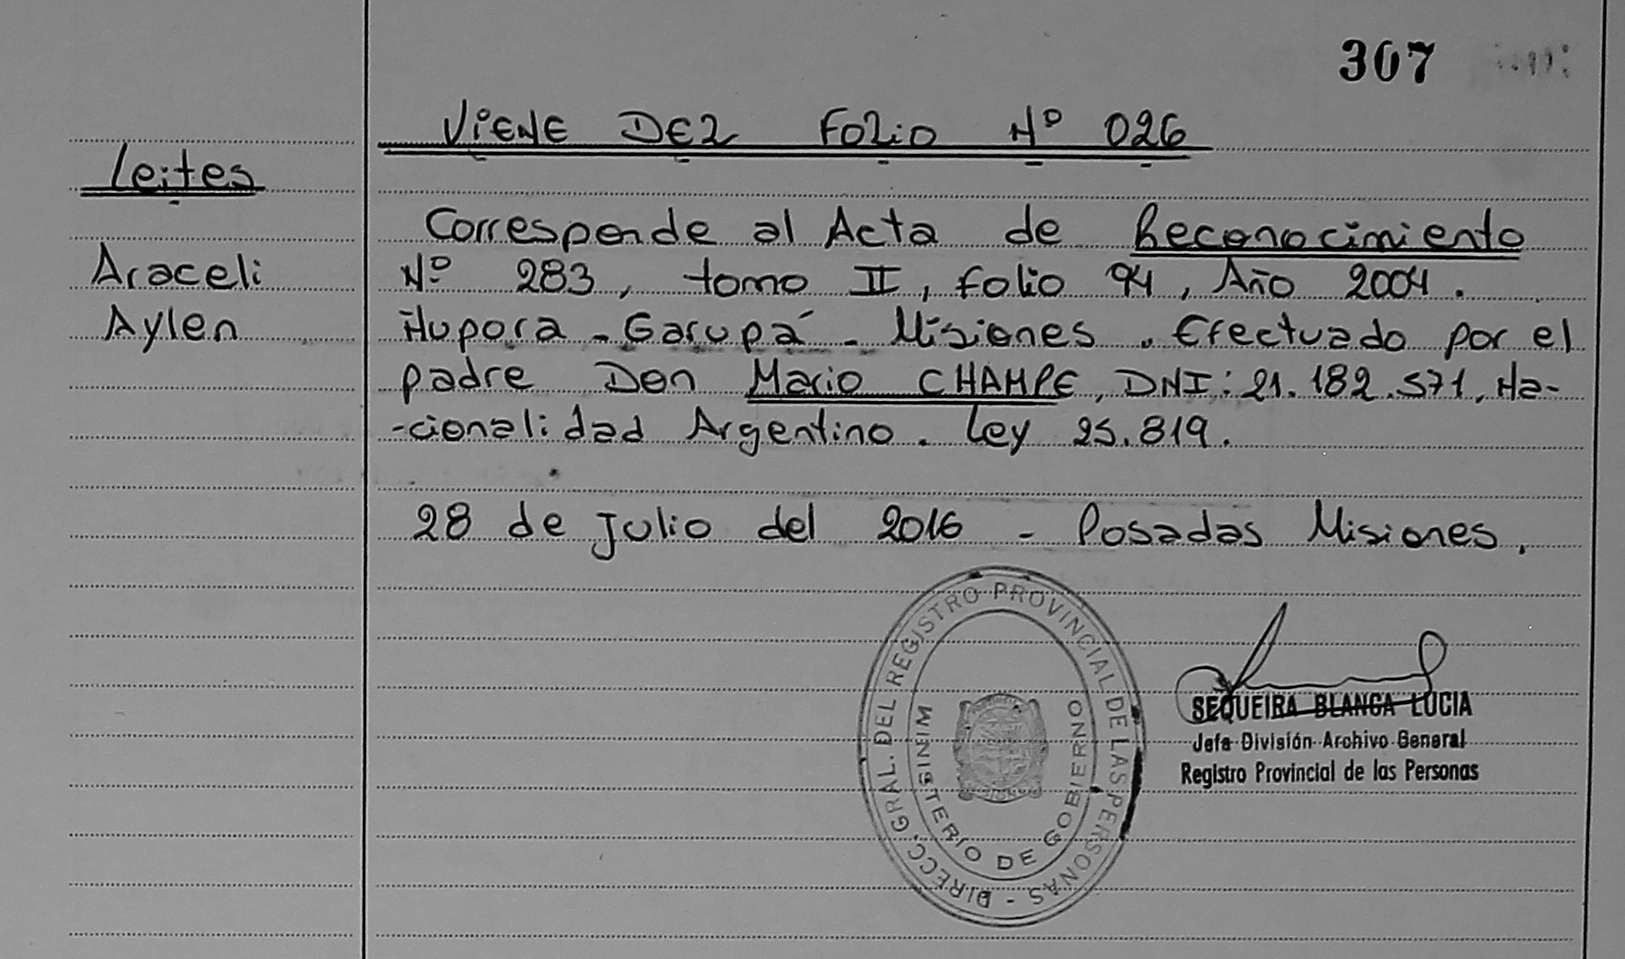 307
VIENE DEL FOLIO Nº 026
Leites
Araceli
Aylen
Corresponde al Acta de Reconocimiento
Nº 283, tomo II, folio 94, Año 2004.
Ñupora - Garupá - Misiones. Efectuado por el
padre Don Mario CHAMPE, DNI: 21.182.571, Na-
-cionalidad Argentino. Ley 25.819.
28 de Julio del 2016 - Posadas Misiones.
DIRECC. GRAL. DEL REGISTRO PROVINCIAL DE LAS PERSONAS -
MINISTERIO DE GOBIERNO
SEQUEIRA BLANCA LUCIA
Jefa División Archivo General
Registro Provincial de las Personas